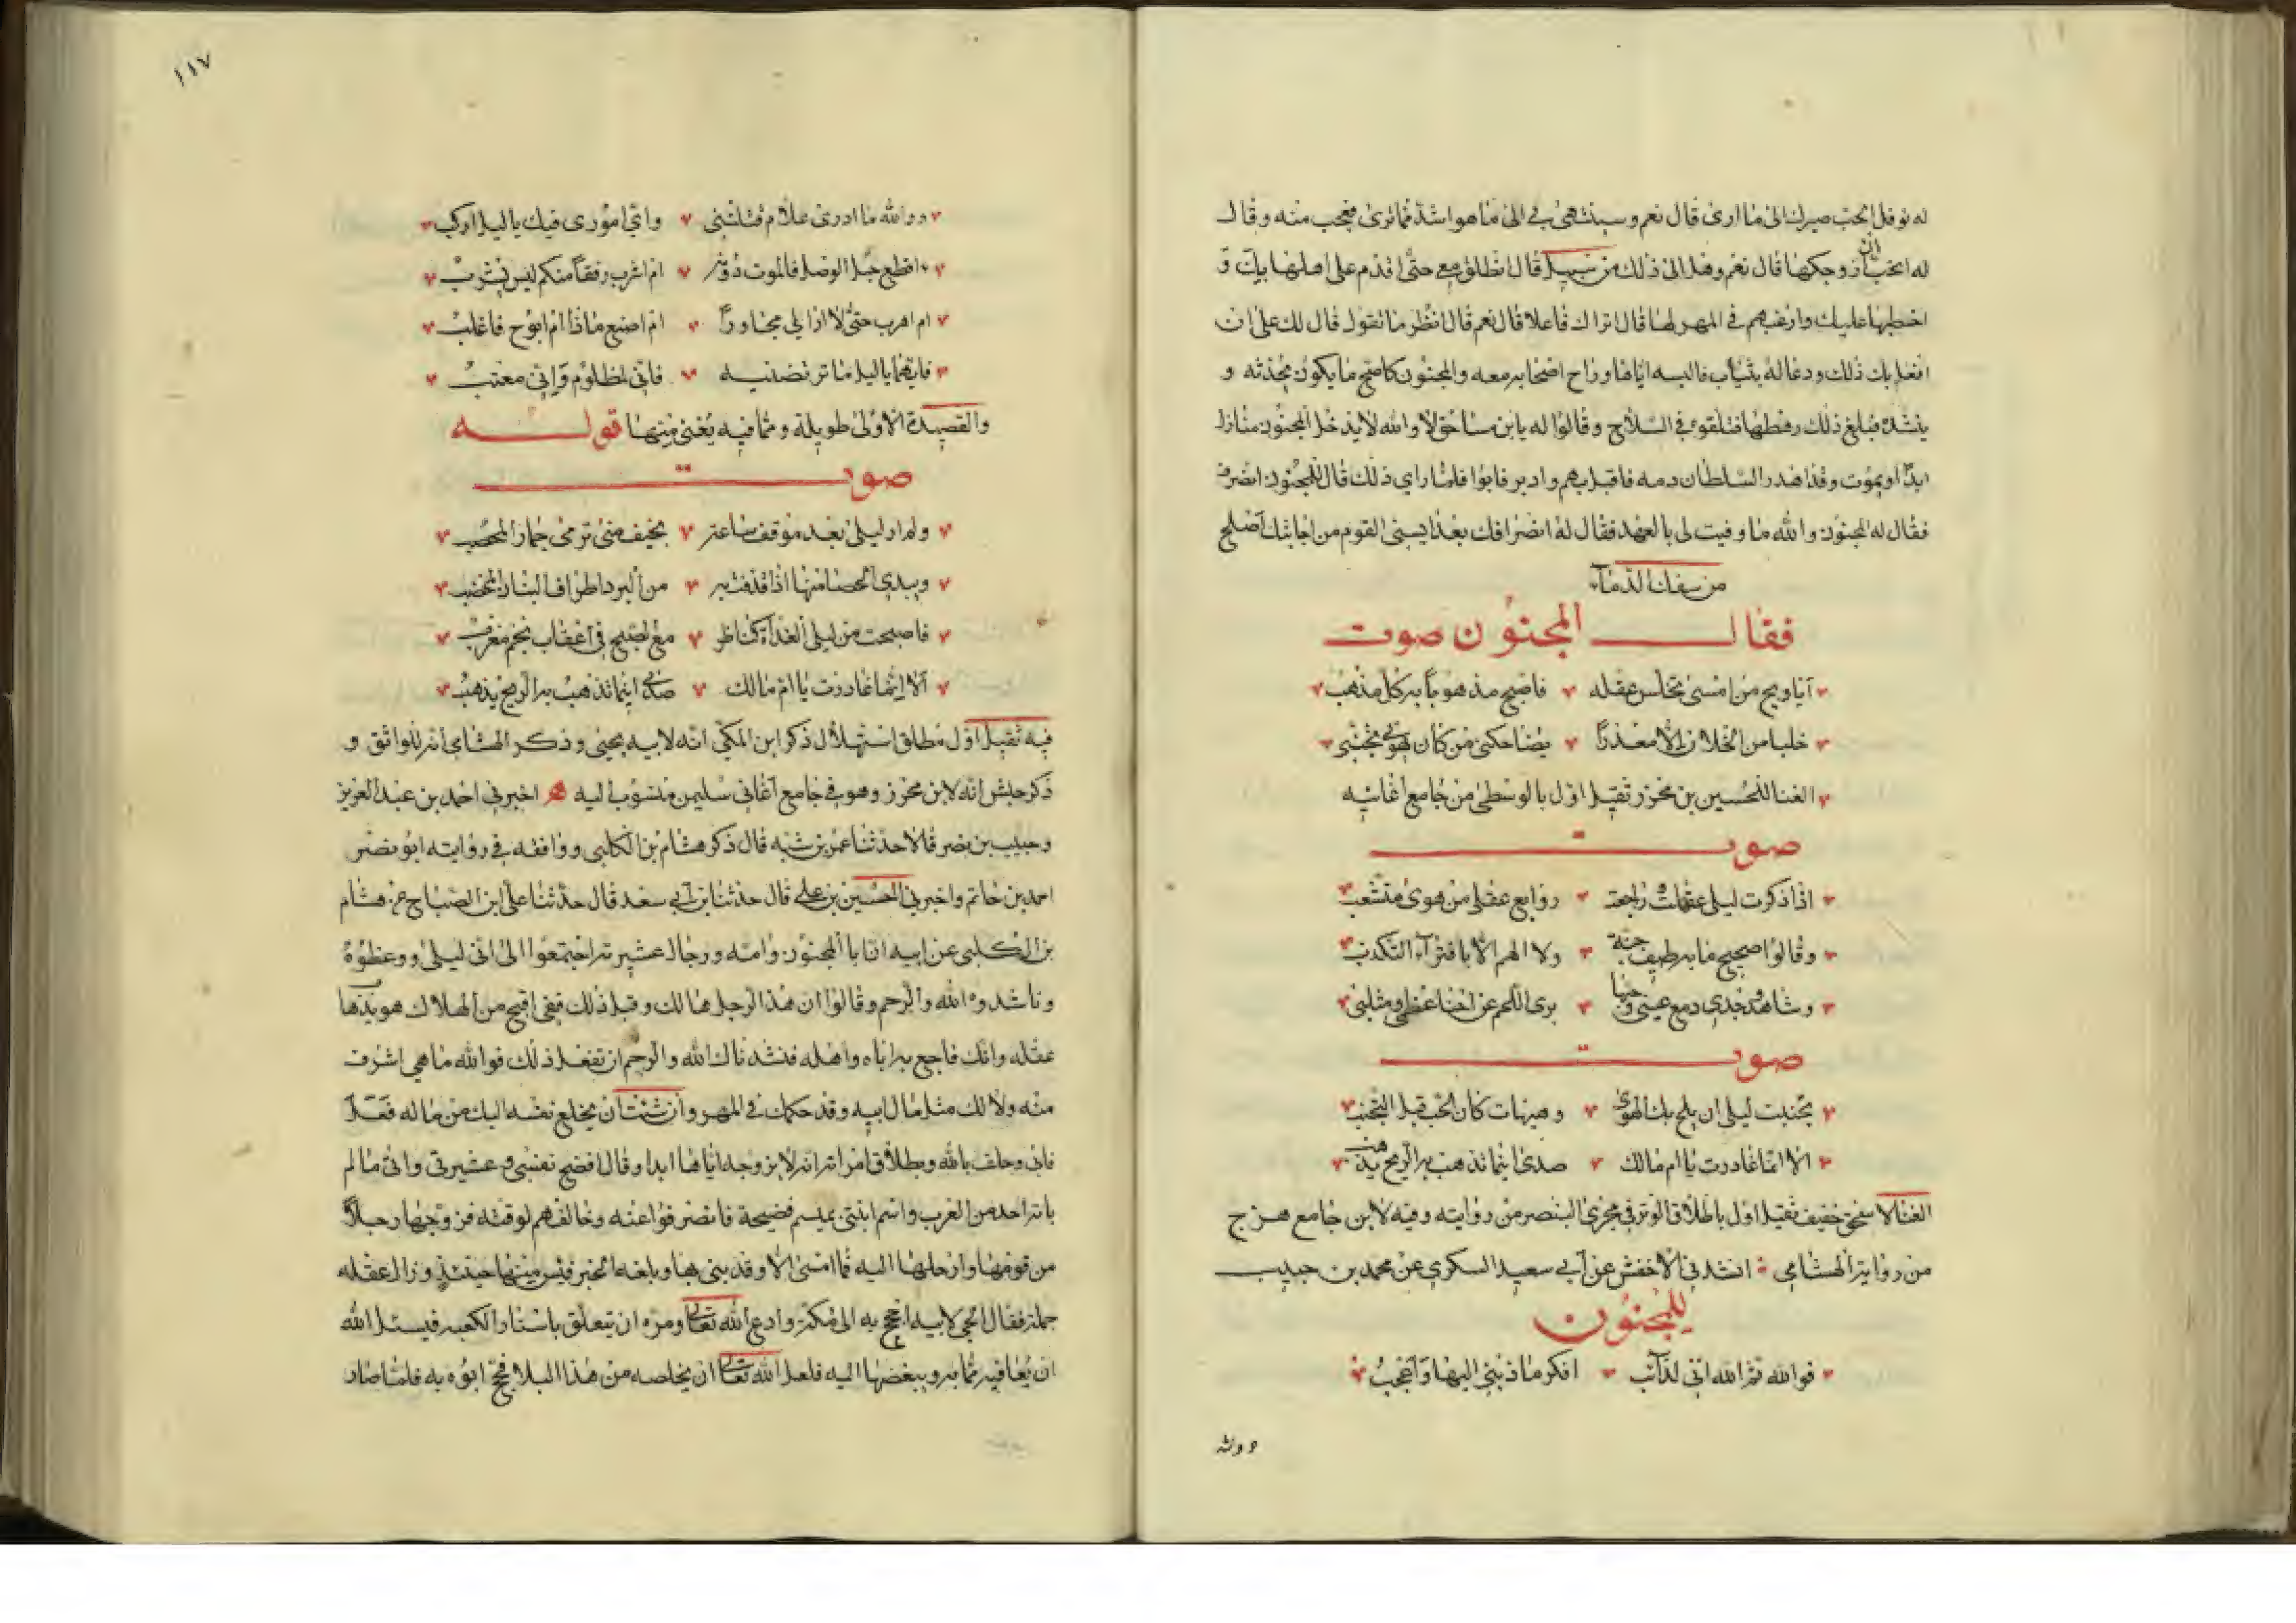 له نوفل الحب صيرك الى ما ارى قال نعم وسينتهى بي الى ما هو اشد مما ترى فعجب منه وقال
له اتحب ان ازوجكها قال نعم وهل الى ذلك من سبيل قال انطلق معي حتى اقدم على اهلها بك و
اخطبها عليك وارغبهم في المهر لها قال اتراك فاعلا قال نعم قال انظر ما تقول قال لك على ان
افعل بك ذلك ودعا له بثياب فالبسه اياها وراح اصحابه معه والمجنون كاصح ما يكون يحدثه و
ينشده فبلغ ذلك رهطها فتلقوه في السلاح وقالوا له يا بن مساحق لا والله لا يدخل المجنون منازلنا
ابدا او يموت وقد اهدر السلطان دمه فاقبل بهم وادبر فابوا فلما راى ذلك قال للمجنون انصرف
فقال له المجنون والله ما وفيت لي بالعهد فقال له انصرافك بعد ايسني القوم من اجابتك اصلح
من سفك الدماء
فقال المجنون صوت
ايا ويح من امسى تخلس عقله فاصبح مذهوبا به كل مذهب
خليا من الخلان الا معذرا يضاحكني من كان يهوى تجنبي
الغنا للحسين بن محرز ثقيل اول بالوسطى من جامع اغانيه
صوت
اذا ذكرت ليلى عقلت وراجعت روايع عقلي من هوى متشعب
وقالوا صحيح ما به طيف جنة ولا الهم الا بافتراء التكذب
وشاهد وجدي دمع عيني وحبها برى اللحم عن احناء عظمي ومنكبي
صوت
تجنبت ليلى ان يلج بك الهوى وهيهات كان الحب قبل التجنب
الا انما غادرت يا ام مالك صدى اينما تذهب به الريح يذهب
الغنا لاسحق خفيف ثقيل اول باطلاق الوتر في مجرى البنصر من روايته وفيه لابن جامع هزج
من رواية الهشامي انشدني الاخفش عن ابي سعيد السكري عن محمد بن حبيب
للمجنون
فوالله ثم الله اني لدائب افكر ما ذنبي اليها واعجب
ووالله
١١٧
ووالله ما ادرى علام قتلتني واي امورى فيك يا ليل اركب
ااقطع حبل الوصل فالموت دونه ام اشرب رفقا منكم ليس يشرب
ام اهرب حتى لا ارى لي مجاورا ام اصنع ماذا ام ابوح فاغلب
فايهما يا ليل ما ترتضينه فاني لمظلوم واني معتب
والقصيدة الاولى طويلة ومما فيه يغنى منها قوله
صوت
ولم ار ليلى بعد موقف ساعة بخيف منى ترمى جمار المحصب
ويبدى الحصا منها اذا قذفت به من البرد اطراف البنان المخضب
فاصبحت من ليلى الغداة كناظر مع الصبح في اعقاب نجم مغرب
الا انما غادرت يا ام مالك صدى اينما تذهب به الريح يذهب
فيه ثقيل اول مطلق استهلال ذكر ابن المكي انه لابيه يحيى وذكر الهشامي انه للواثق و
ذكر حبش انه لابن محرز وهو في جامع اغاني سليمن منسوب اليه اخبرني احمد بن عبد العزيز
وحبيب بن نصر قالا حدثنا عمر بن شبه قال ذكر هشام بن الكلبي ووافقه في روايته ابو نصر
احمد بن حاتم واخبرني الحسين بن علي قال حدثنا ابن ابي سعد قال حدثنا على ابن الصباح عن هشام
بن الكلبى عن ابيه ان ابا المجنون وامه ورجال عشيرته اجتمعوا الى ابى ليلى ووعظوه
وناشدوه الله والرحم وقالوا ان هذا الرجل هالك وقبل ذلك ففى اقبح من الهلاك هو بذهاب
عقله وانك فاجع به اباه واهله فنشدناك الله والرحم ان تفعل ذلك فوالله ما هي اشرف
منه ولا لك مثل مال ابيه وقد حكمك في المهر وان شئت ان يخلع نفسه اليك من ماله فعل
فابى وحلف بالله وبطلاق امراته انه لا يزوجه اياها ابدا وقال افضح نفسى وعشيرتى واتى ما لم
ياته احد من العرب واسم ابنتى بميسم فضيحة فانصرفوا عنه وخالفهم لوقته فزوجها رجلا
من قومها وادخلها اليه فما امسى الا وقد بنى بها وبلغه الخبر فيس منها حينئذ وزال عقله
جملة فقال الحي لابيه احجج به الى مكة وادع الله تعالى ومره ان يتعلق باستار الكعبه فيسئل الله
ان يعافيه مما به ويبغضها اليه فلعل الله تعالى ان يخلصه من هذا البلا فحج ابوه به فلما صار